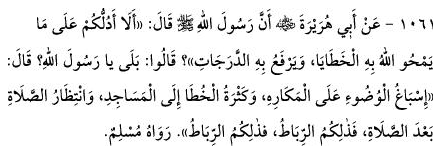 ١٠٦١ - عَنْ أَبِي هُرَيْرَةَ ﵁ أَنَّ رَسُولَ اللهِ ﷺ قَالَ: «أَلَا أَدُلُّكُمْ عَلَى مَا
يَمْحُو اللهُ بِهِ الْخَطَايَا، وَيَرْفَعُ بِهِ الدَّرَجَاتِ»؟ قَالُوا: بَلَى يَا رَسُولَ اللهِ؟ قَالَ:
«إِسْبَاغُ الْوُضُوءِ عَلَى الْمَكَارِهِ، وَكَثْرَةُ الْخُطَا إِلَى الْمَسَاجِدِ، وَانْتِظَارُ الصَّلَاةِ
بَعْدَ الصَّلَاةِ، فَذٰلِكُمُ الرِّبَاطُ، فَذٰلِكُمُ الرِّبَاطُ». رَوَاهُ مُسْلِمٌ.